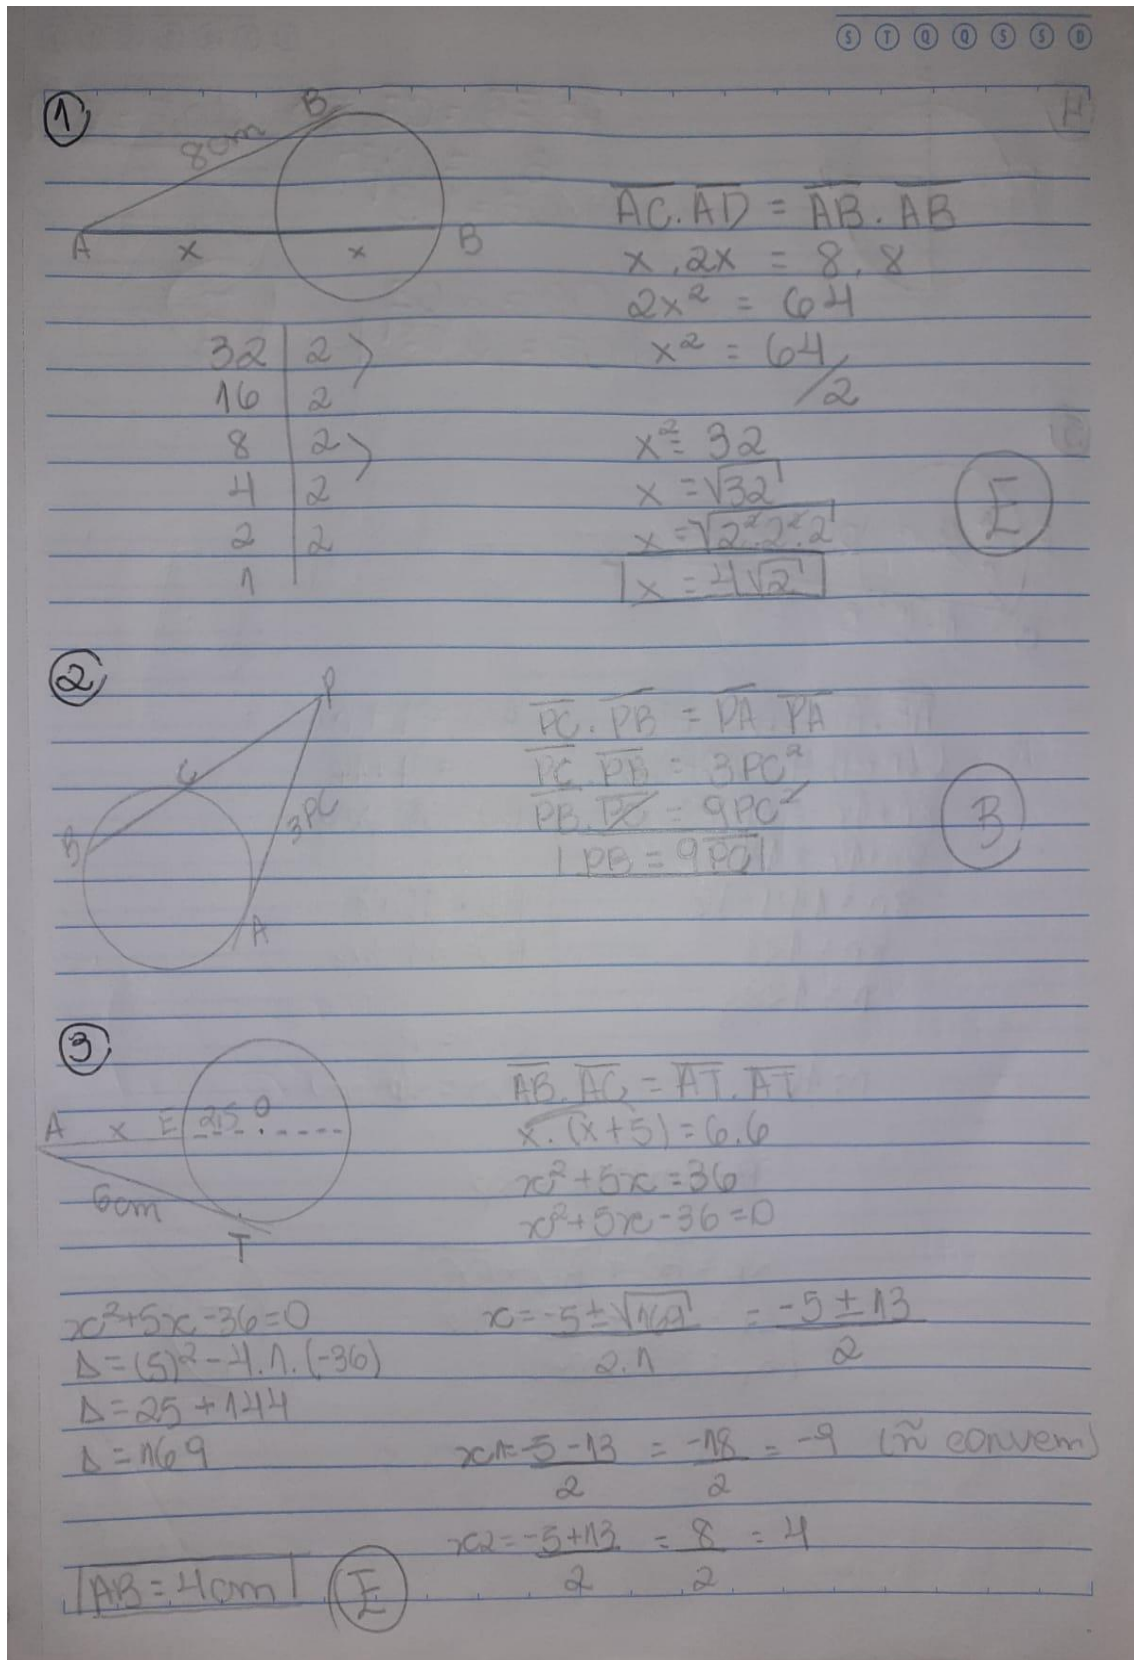 S T Q Q S S D
1
B
8cm
A x x B
AC . AD = AB . AB
x . 2x = 8 . 8
2x² = 64
x² = 64/2
x² = 32
x = √32
x = √2².2².2
x = 4√2
E
32 | 2
16 | 2
8 | 2
4 | 2
2 | 2
1
2
P
C
B
3PC
A
PC . PB = PA . PA
PC . PB = 3PC²
PB . PC = 9PC²
PB = 9PC
B
3
A x E 2,5 O
6cm
T
AB . AC = AT . AT
x . (x+5) = 6.6
x² + 5x = 36
x² + 5x - 36 = 0
x² + 5x - 36 = 0
Δ = (5)² - 4.1.(-36)
Δ = 25 + 144
Δ = 169
x = -5 ± √169 / 2.1 = -5 ± 13 / 2
x1 = -5 - 13 / 2 = -18 / 2 = -9 (ñ convem)
x2 = -5 + 13 / 2 = 8 / 2 = 4
AB = 4cm
E